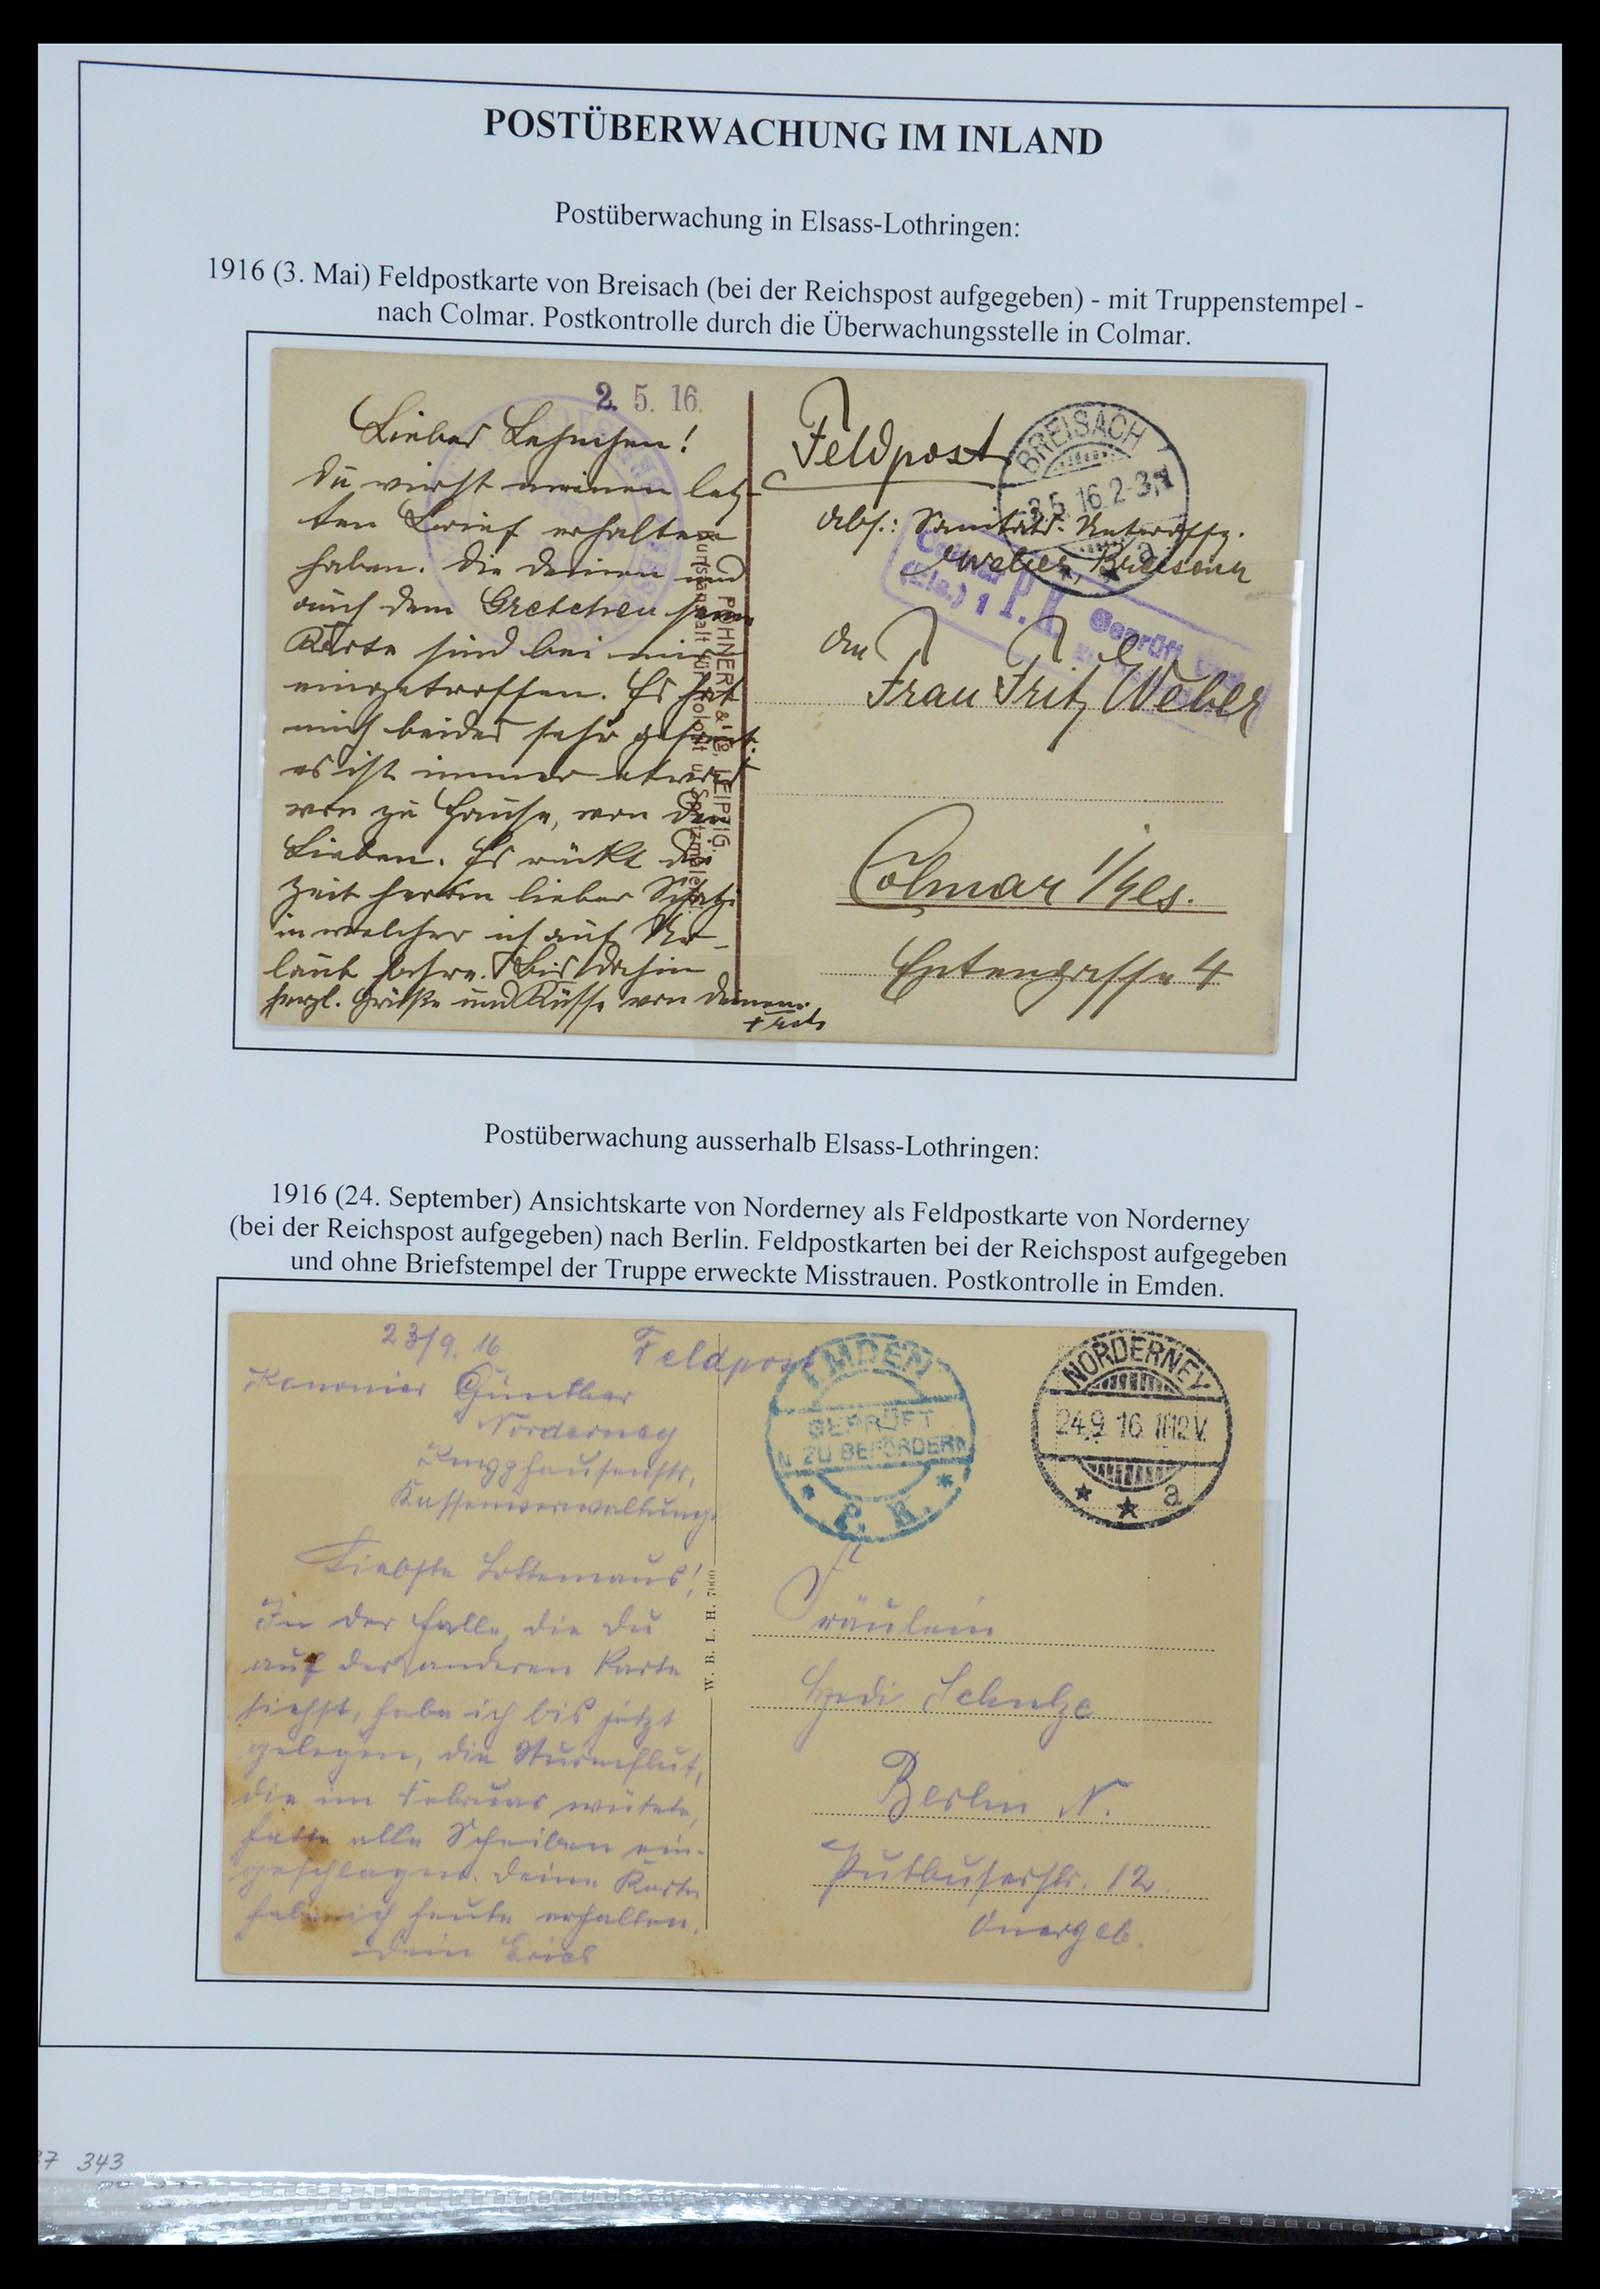 POSTÜBERWACHUNG IM INLAND
Postüberwachung in Elsass-Lothringen:
1916 (3. Mai) Feldpostkarte von Breisach (bei der Reichspost aufgegeben) - mit Truppenstempel -
nach Colmar. Postkontrolle durch die Überwachungsstelle in Colmar.
2. 5. 16.
Lieber Lehnchen!
Du wirst meinen letz-
ten Brief erhalten
haben. Die Deinen und
auch dem Gretchen
Karte sind bei mir
eingetroffen. Es hat
mich beides sehr gefreut;
es ist immer etwas
von zu Hause, von den
Lieben. Es rückt die
Zeit heran lieber Schatz
in welcher ich auf Ur-
laub fahre. Bis dahin
herzl. Grüße und Küsse von Deinem
Fritz
PÖHNER & LEIPZIG.
Kunstanstalt für Kolorit u.
Feldpost
BREISACH
3.5.16.2-3N
a
Abs.: Sanitäts-Unteroffz.
Weber, Breisach
Colmar
(Els.) 1
P.K.
Geprüft und
An
Frau Fritz Weber
Colmar i/Els.
Entengasse 4
Postüberwachung ausserhalb Elsass-Lothringen:
1916 (24. September) Ansichtskarte von Norderney als Feldpostkarte von Norderney
(bei der Reichspost aufgegeben) nach Berlin. Feldpostkarten bei der Reichspost aufgegeben
und ohne Briefstempel der Truppe erweckte Misstrauen. Postkontrolle in Emden.
23/9. 16
Feldpost
Kanonier Günther
Norderney
Knyphausenstr.
Kassenverwaltung.
Liebste Lottemaus!
In der Halle, die Du
auf der anderen Karte
siehst, habe ich bis jetzt
gelegen, die Sturmflut,
die im Februar wütete,
hatte alle Scheiben ein-
geschlagen. Deine Karte
habe ich heute erhalten.
Dein Erich
W. B. L. H. 7000
EMDEN
GEPRÜFT
U. ZU BEFÖRDERN
P. K.
NORDERNEY
24.9 16 11-12V.
a
Fräulein
Hedi Schulze
Berlin N.
Putbuserstr. 12.
Quergeb.
37 343